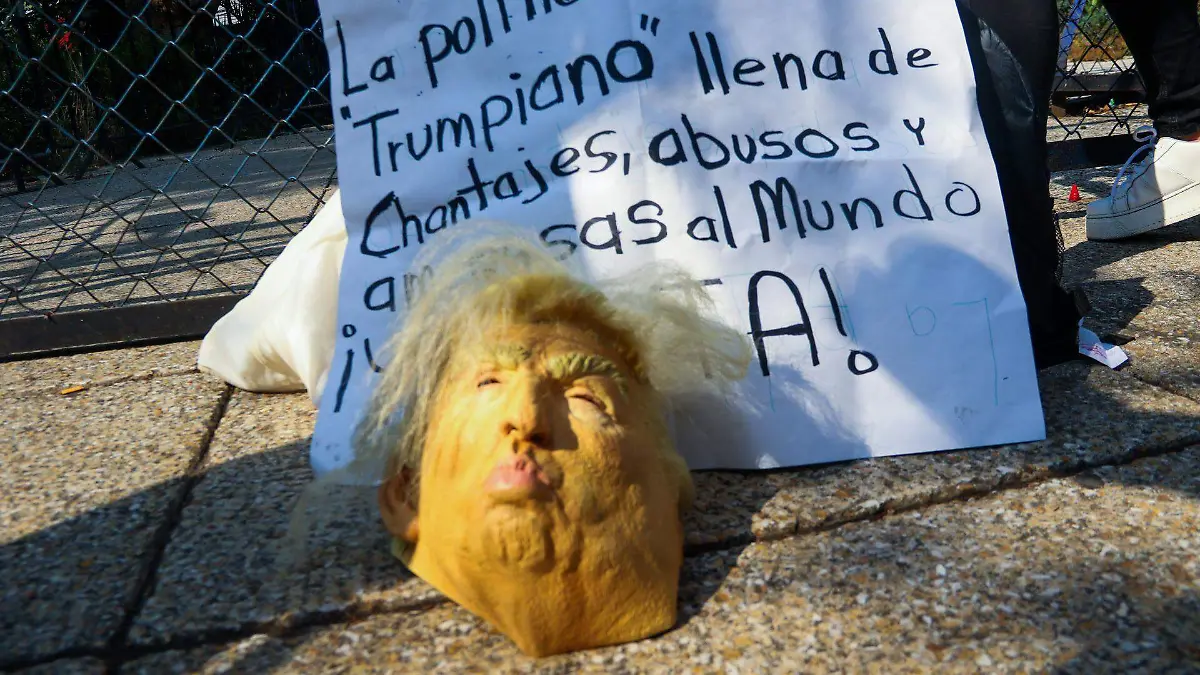 La
"Trumpiano" llena de
Chantajes, abusos y
al Mundo